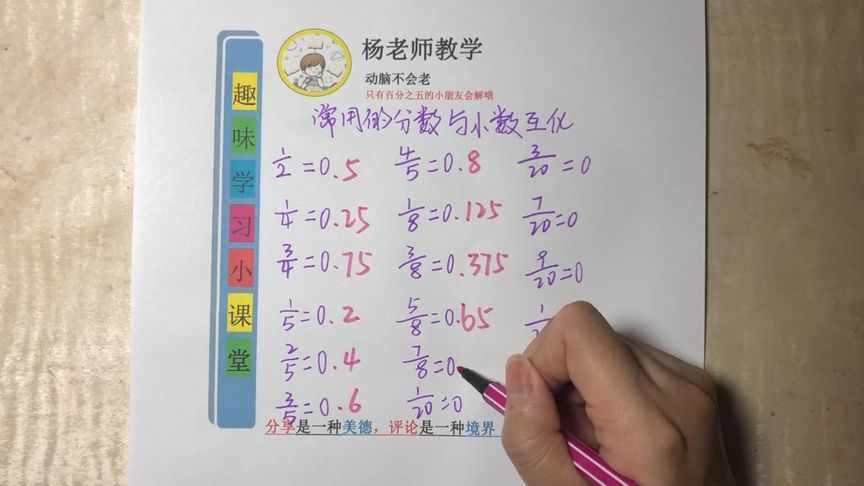 杨老师教学
动脑不会老
只有百分之五的小朋友会解哦
趣味学习小课堂
常用的分数与小数互化
1/2=0.5 4/5=0.8 3/20=0
1/4=0.25 1/8=0.125 7/20=0
3/4=0.75 3/8=0.375 9/20=0
1/5=0.2 5/8=0.65
2/5=0.4 7/8=0
3/5=0.6 1/20=0
分享是一种美德，评论是一种境界